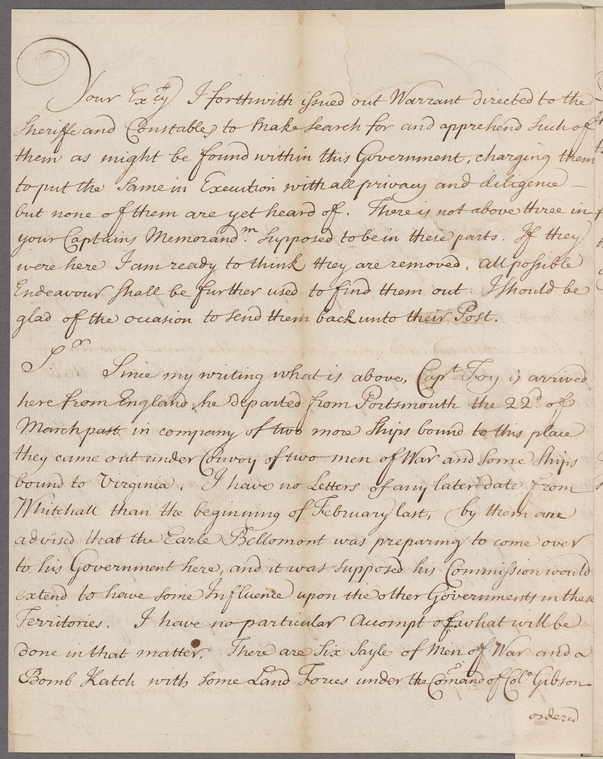 Your Excy. I forthwith issued out Warrant directed to the
Sheriffe and Constables to make search for and apprehend such of
them as might be found within this Government, charging them
to put the same in Execution with all privacy and diligence –
but none of them are yet heard of. There is not above three in
your Captains Memorandm. supposed to be in these parts. If they
were here I am ready to think they are removed, all possible
Endeavour shall be further used to find them out. I should be
glad of the occasion to send them back unto their Post.
Sr. Since my writing what is above, Capt. Foy is arrived
here from England, he departed from Portsmouth the 22d of
March past in company of two more Ships bound to this place
they came out under Convoy of two men of War and some Ships
bound to Virginia. I have no Letters of any later date from
Whitehall than the beginning of February last, by them am
advised that the Earle Bellomont was preparing to come over
to his Government here, and it was supposed his Commission would
extend to have some Influence upon the other Governments in these
Territories. I have no particular Accompt of what will be
done in that matter. There are Six Sayle of Men of War and a
Bomb Katch with some Land Forces under the Comand of Colo. Gibson
ordered